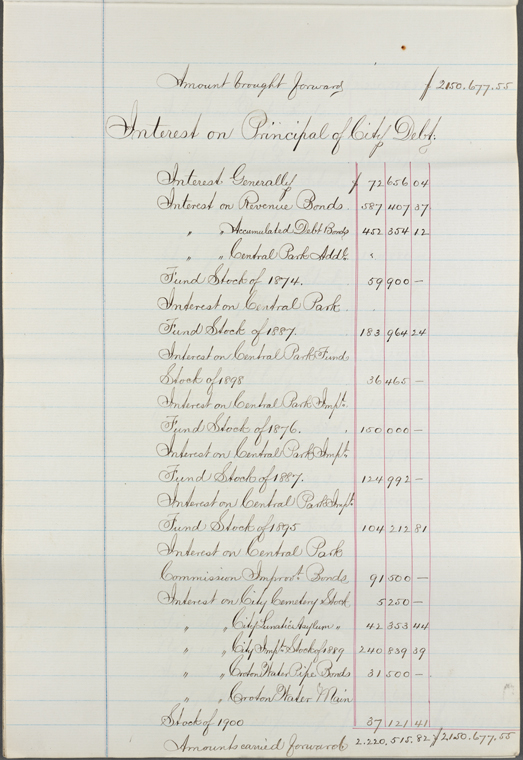 Amount brought forward $2150.677.55
Interest on Principal of City Debt.
Interest Generally $ 72 656 04
Interest on Revenue Bonds. 587 407 37
" " Accumulated Debt Bonds 452 354 12
" " Central Park Addl.
Fund Stock of 1874. 59 900 —
Interest on Central Park
Fund Stock of 1887. 183 964 24
Interest on Central Park Fund
Stock of 1898 36 465 —
Interest on Central Park Impt.
Fund Stock of 1876. 150,000 —
Interest on Central Park Impt.
Fund Stock of 1887. 124 992 —
Interest on Central Park Impt.
Fund Stock of 1895 104 212 81
Interest on Central Park
Commission Improvt. Bonds 91 500 —
Interest on City Cemetery Stock 5 250 —
" " City Lunatic Asylum " 42 353 44
" " City Impt. Stock of 1889 240 839 39
" " Croton Water Pipe Bonds 31 500 —
" " Croton Water Main
Stock of 1900 37,121 41
Amounts carried forward 2.220,515.82 $2150.677.55